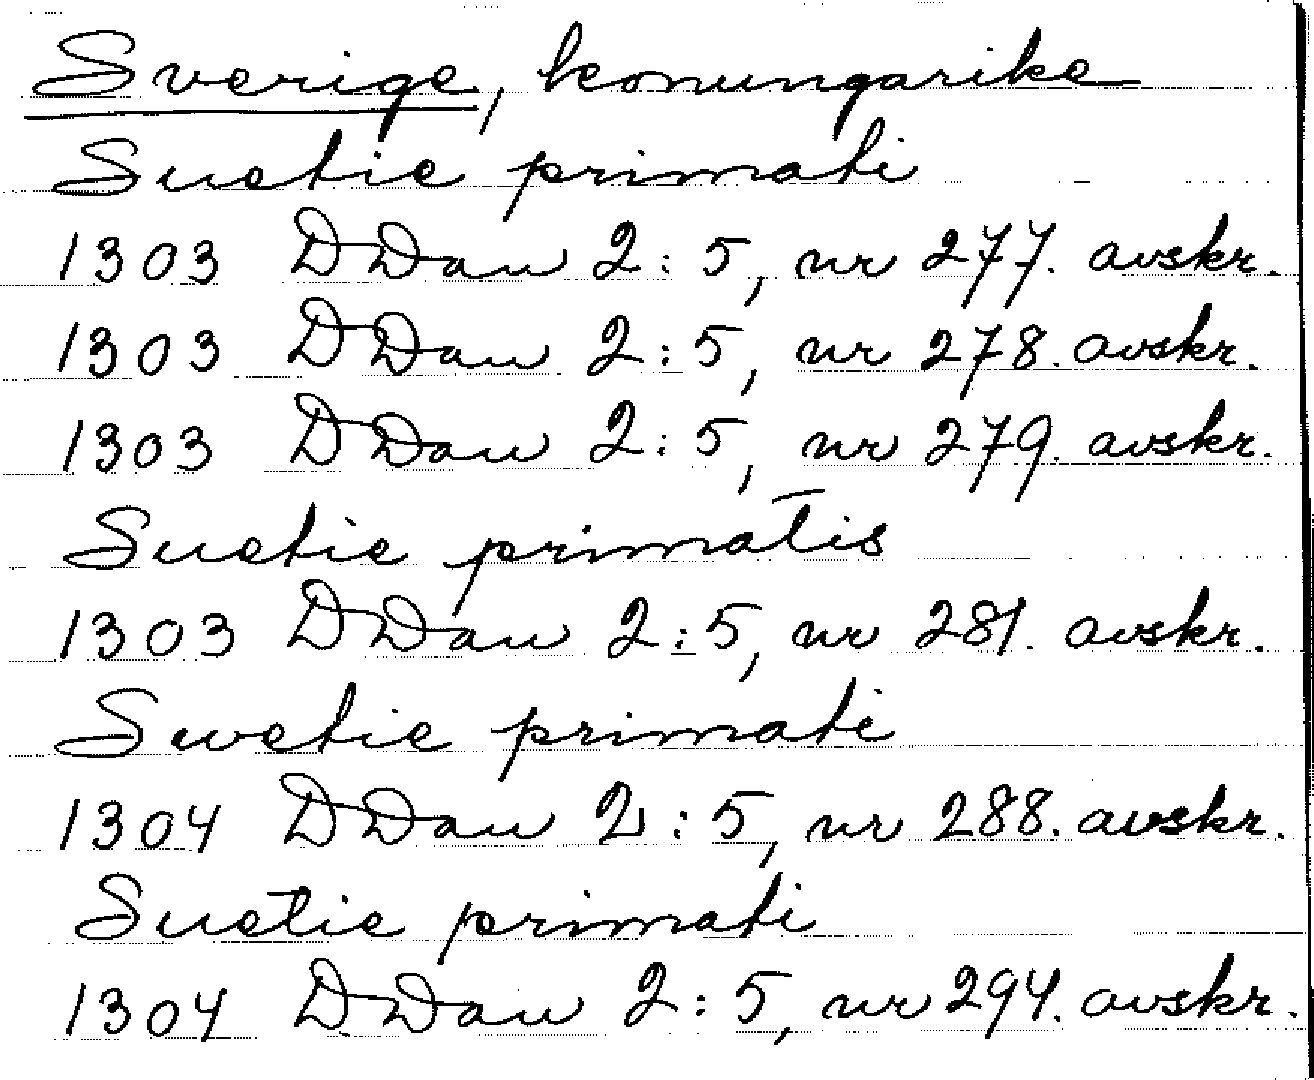 Sverige, konungarike
Suetie primati
1303 DDan 2:5, nr 277. avskr.
1303 DDan 2:5, nr 278. avskr.
1303 DDan 2:5, nr 279. avskr.
Suetie primatis
1303 DDan 2:5, nr 281. avskr.
Swetie primati
1304 DDan 2:5, nr 288. avskr.
Suetie primati
1304 DDan 2:5, nr 294. avskr.